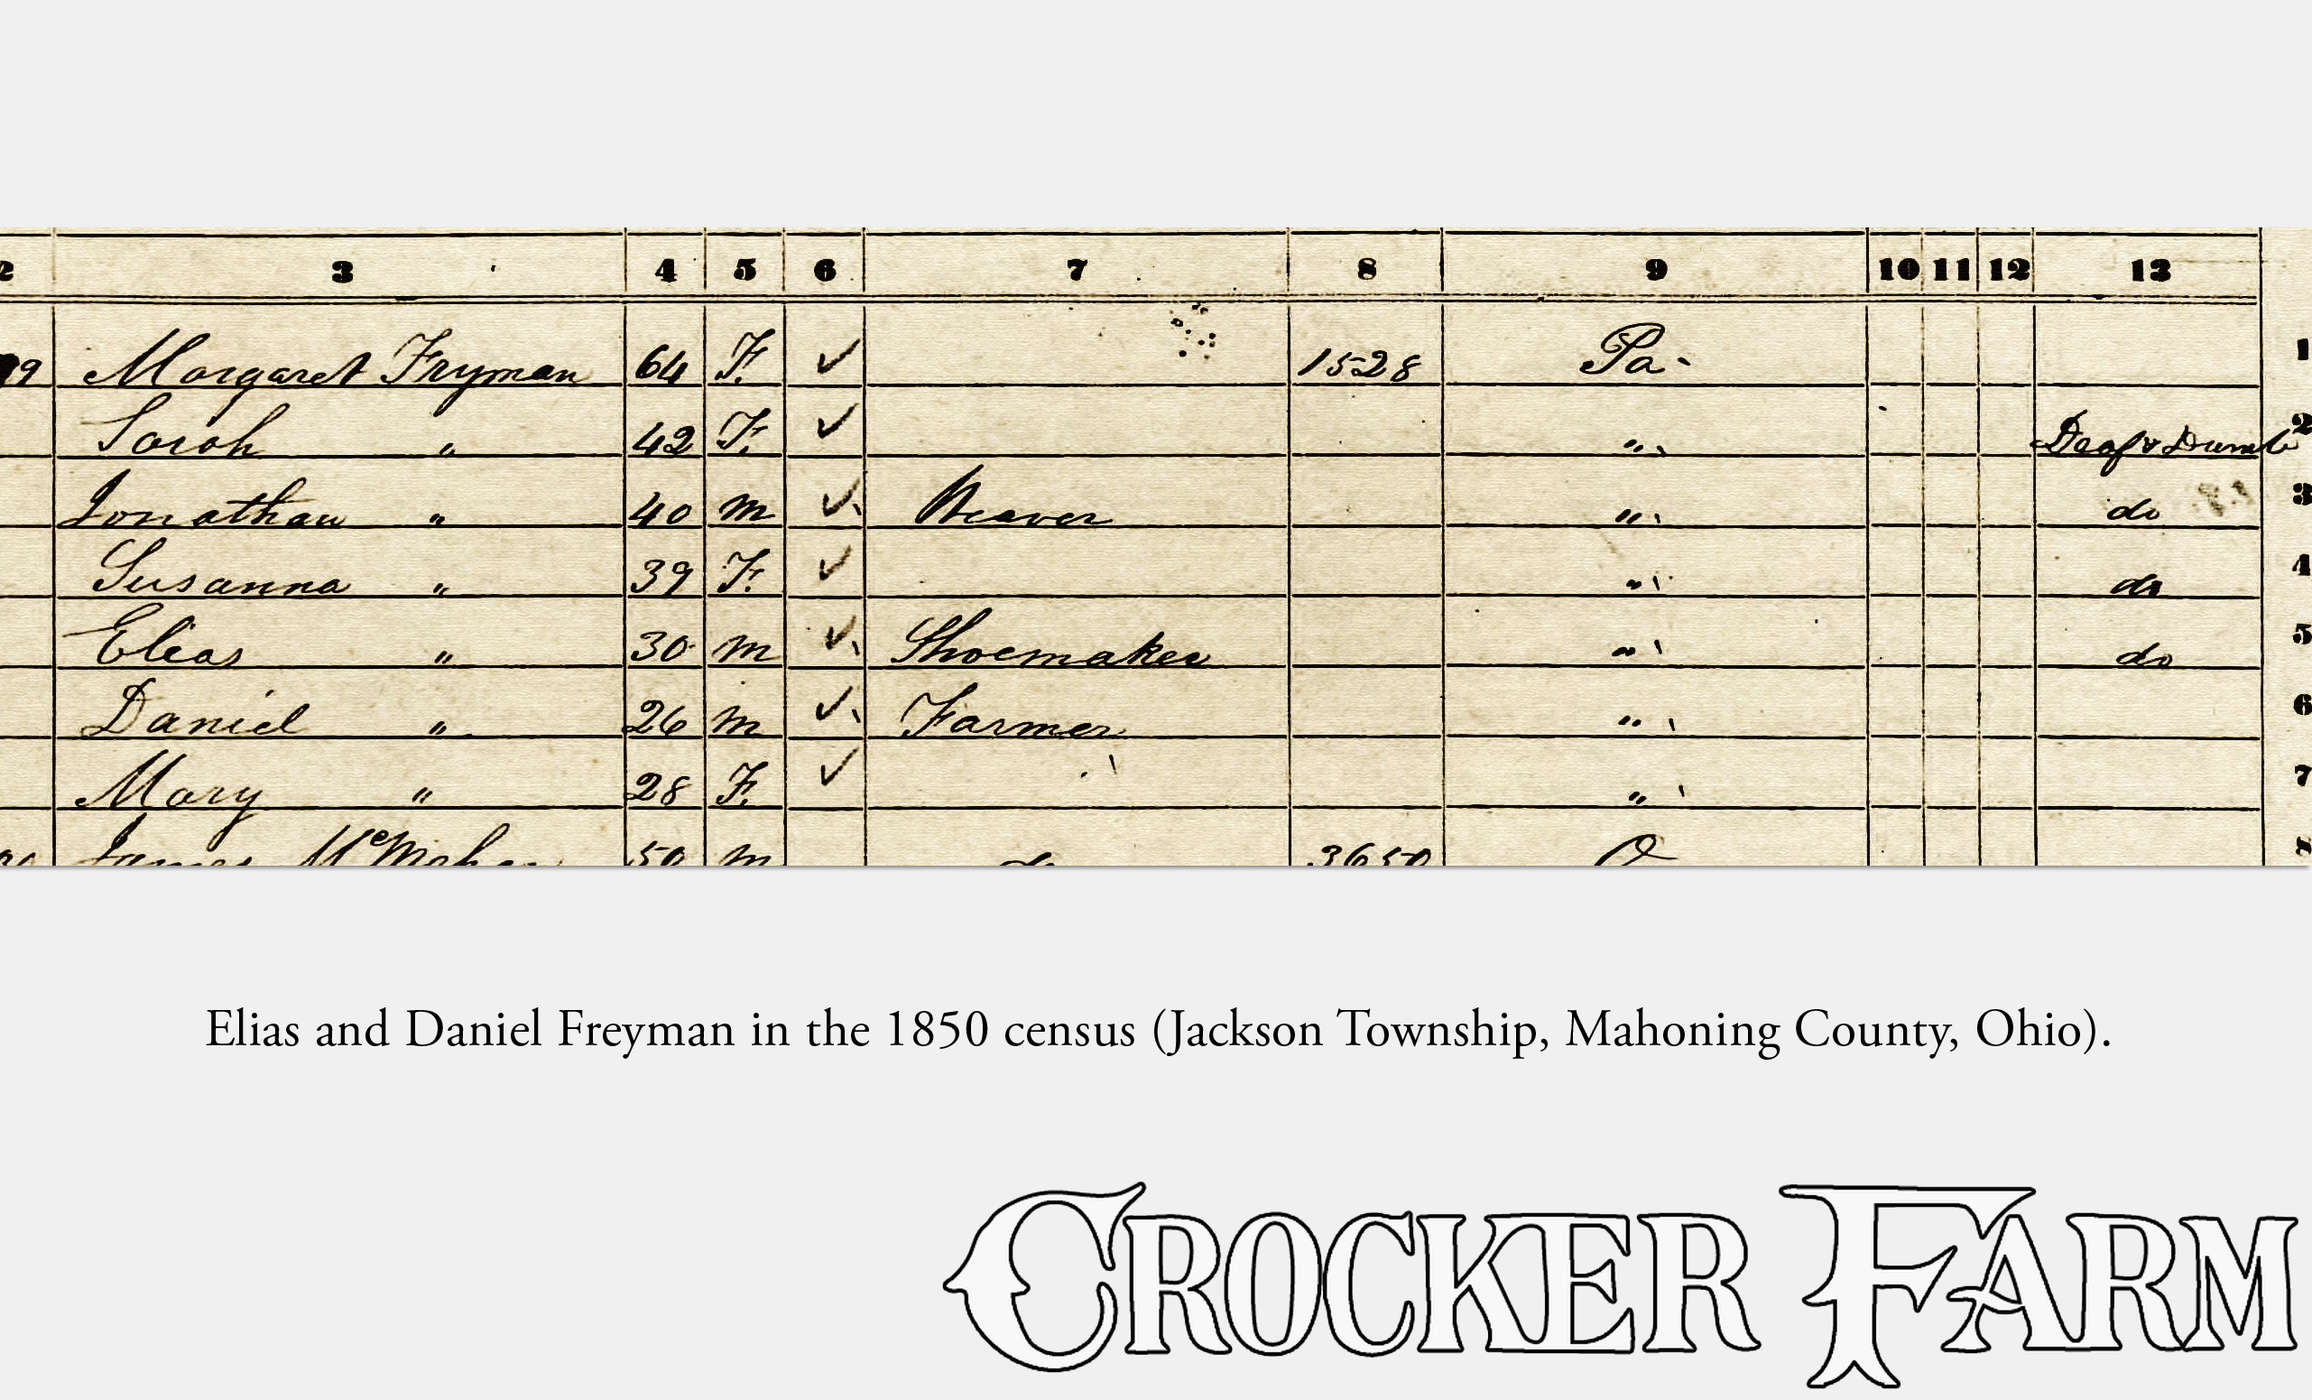 2 3 4 5 6 7 8 9 10 11 12 13
79 Margaret Fryman 64 F. ✓ 1528 Pa- 1
Sarah " 42 F. ✓ " Deaf & Dumb 2
Jonathan " 40 m ✓ Weaver " do 3
Susanna " 39 F. ✓ " do 4
Elias " 30 m ✓ Shoemaker " do 5
Daniel " 26 m ✓ Farmer " 6
Mary " 28 F. ✓ " 7
James 50 m do 3650 O 8
Elias and Daniel Freyman in the 1850 census (Jackson Township, Mahoning County, Ohio).
CROCKER FARM